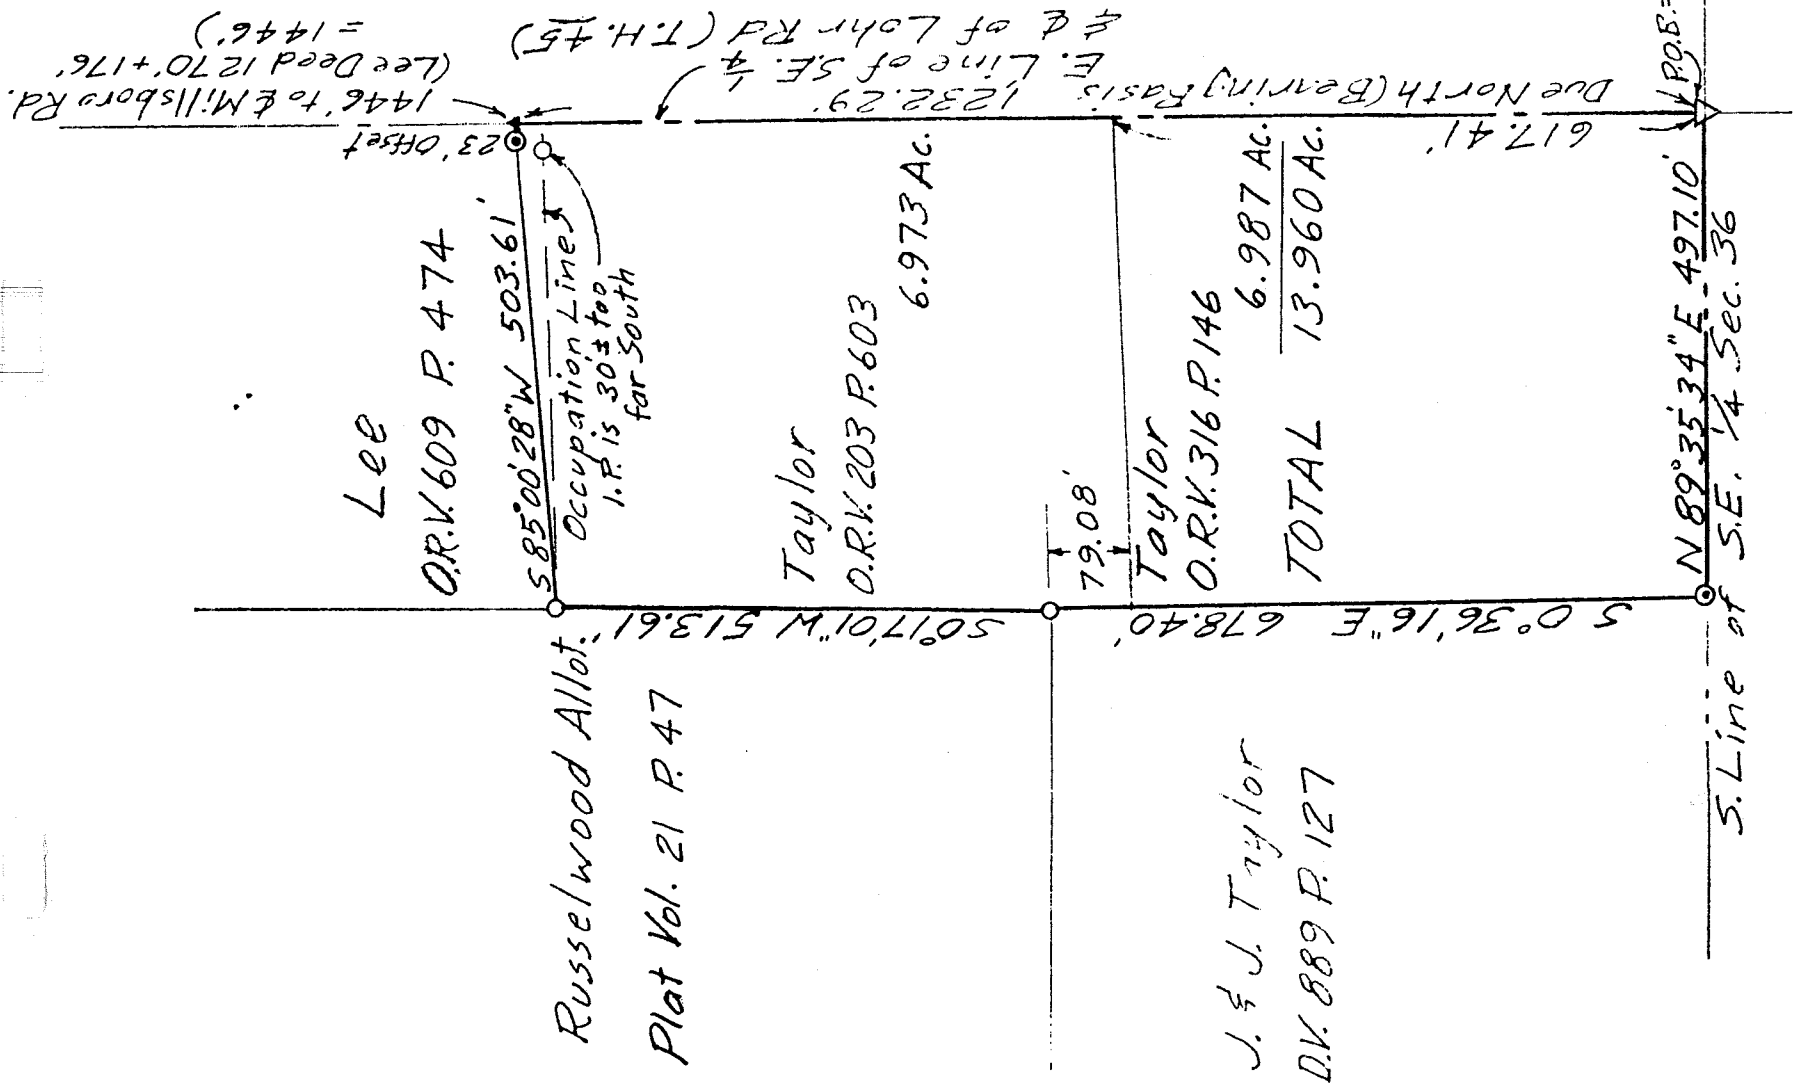 1446' to ℄ Millsboro Rd.
(Lee Deed 1270'+176'
= 1446')
23' Offset
E. Line of S.E. 1/4
& ℄ of Lohr Rd (T.H. 45)
1232.29'
Due North (Bearing Basis
617.41'
P.O.B.=
Lee
O.R.V. 609 P. 474
S 85°00'28"W 503.61'
Occupation Lines
I.P. is 30'± too
far South
Taylor
O.R.V. 203 P. 603
6.973 Ac.
79.08'
Taylor
O.R.V. 316 P. 146
6.987 Ac.
TOTAL 13.960 Ac.
N 89°35'34"E 497.10'
S. Line of S.E. 1/4 Sec. 36
S0°17'01"W 513.61'
S 0°36'16"E 678.40'
Russelwood Allot.
Plat Vol. 21 P. 47
J. & J. Taylor
D.V. 889 P. 127